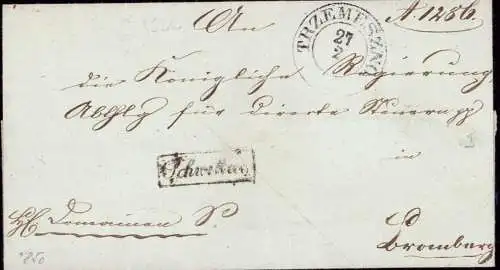 An
A. 1286.
TRZEMESZNO
27
2
die Königliche Regierung
Abthlg für directe Steuern pp
in
Domainen S.
Bromberg
1850